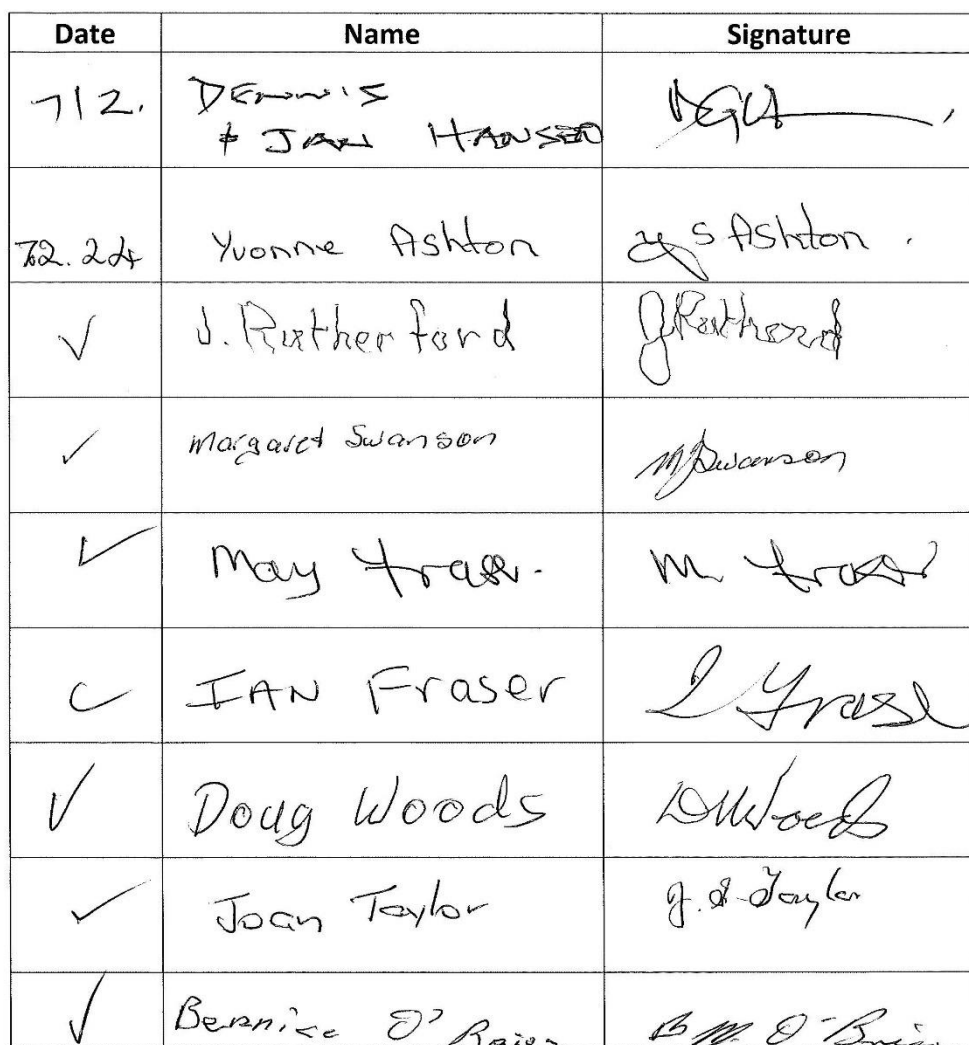 Date Name Signature
712. DENNIS
& JAN HANSEN
72.24 Yvonne Ashton Y S Ashton.
✓ J. Rutherford J Rutherford
✓ Margaret Swanson M Swanson
✓ May Fraser. M Fraser
✓ IAN Fraser I Fraser
✓ Doug Woods D Woods
✓ Joan Taylor J. S. Taylor
✓ Bernice O'Brien B M. O'Brien